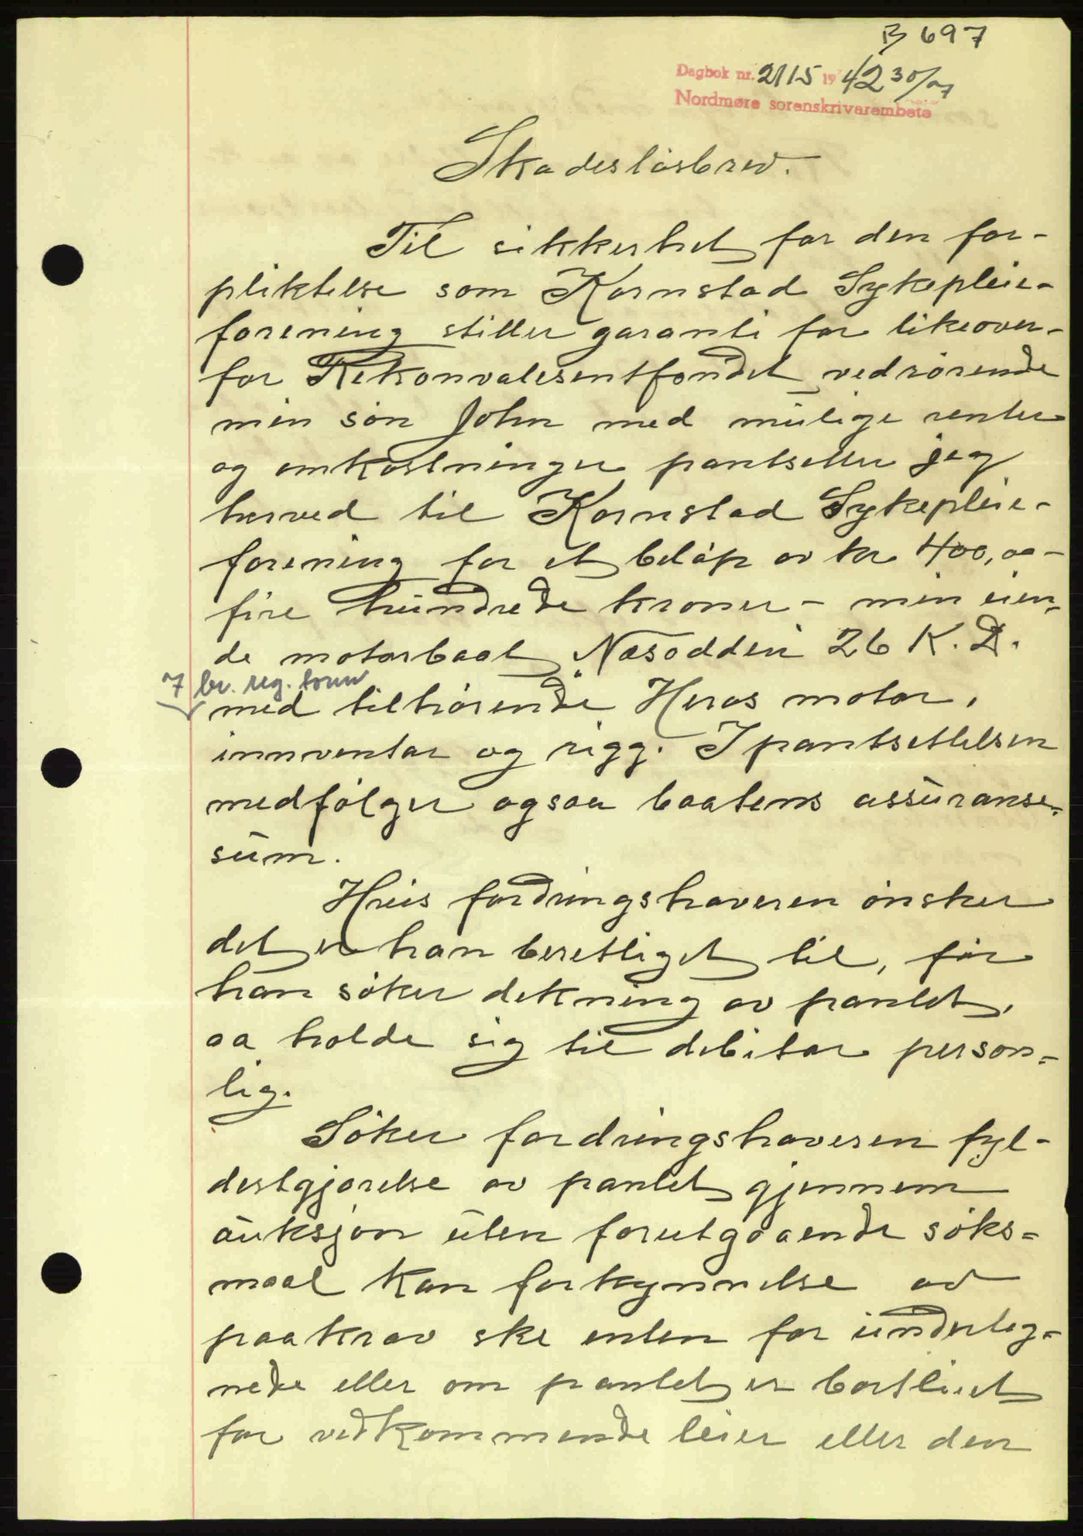 B 697
Dagbok nr. 2115 1942 30/07
Nordmøre sorenskrivarembete
Skadesløsbrev.
Til sikkerhet for den for-
pliktelse som Kornstad Sykepleie-
forening stiller garanti for likeover-
for Rekonvalesentfondet vedrørende
min søn John med mulige renter
og omkostninger pantsetter jeg
herved til Kornstad Sykepleie-
forening for et beløp av kr 400,00 -
fire hundrede kroner - min eien-
de motorbaat "Næsodden" 26 K. D.
7 br. reg. tonn
med tilhørende Heros motor,
innventar og rigg. I pantsettelsen
medfølger ogsaa baatens assuranse-
sum.
Hvis fordringshaveren ønsker
det er han berettiget til, før
han søker dekning av pantet,
aa holde sig til debitor person-
lig.
Søker fordringshaveren fyl-
destgjørelse av pantet gjennem
auksjon uten forutgaaende søks-
maal kan forkynnelse av
paakrav ske enten for underteg-
nede eller om pantet er bortleiet
for vedkommende leier eller den